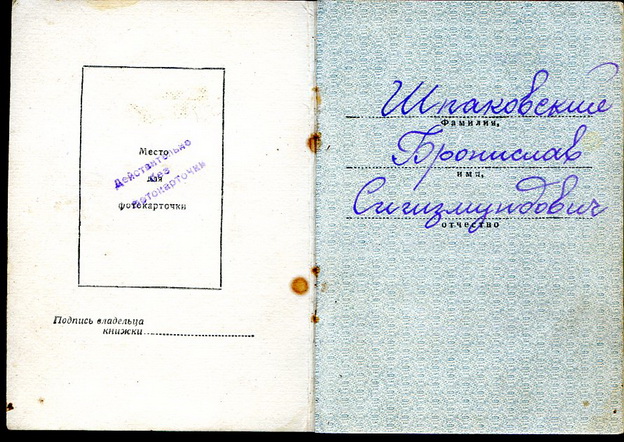 Место
для
фотокарточки
Действительно
без
фотокарточки
Подпись владельца
книжки
Шпаковский
Фамилия,
Бронислав
имя,
Сигизмундович
отчество